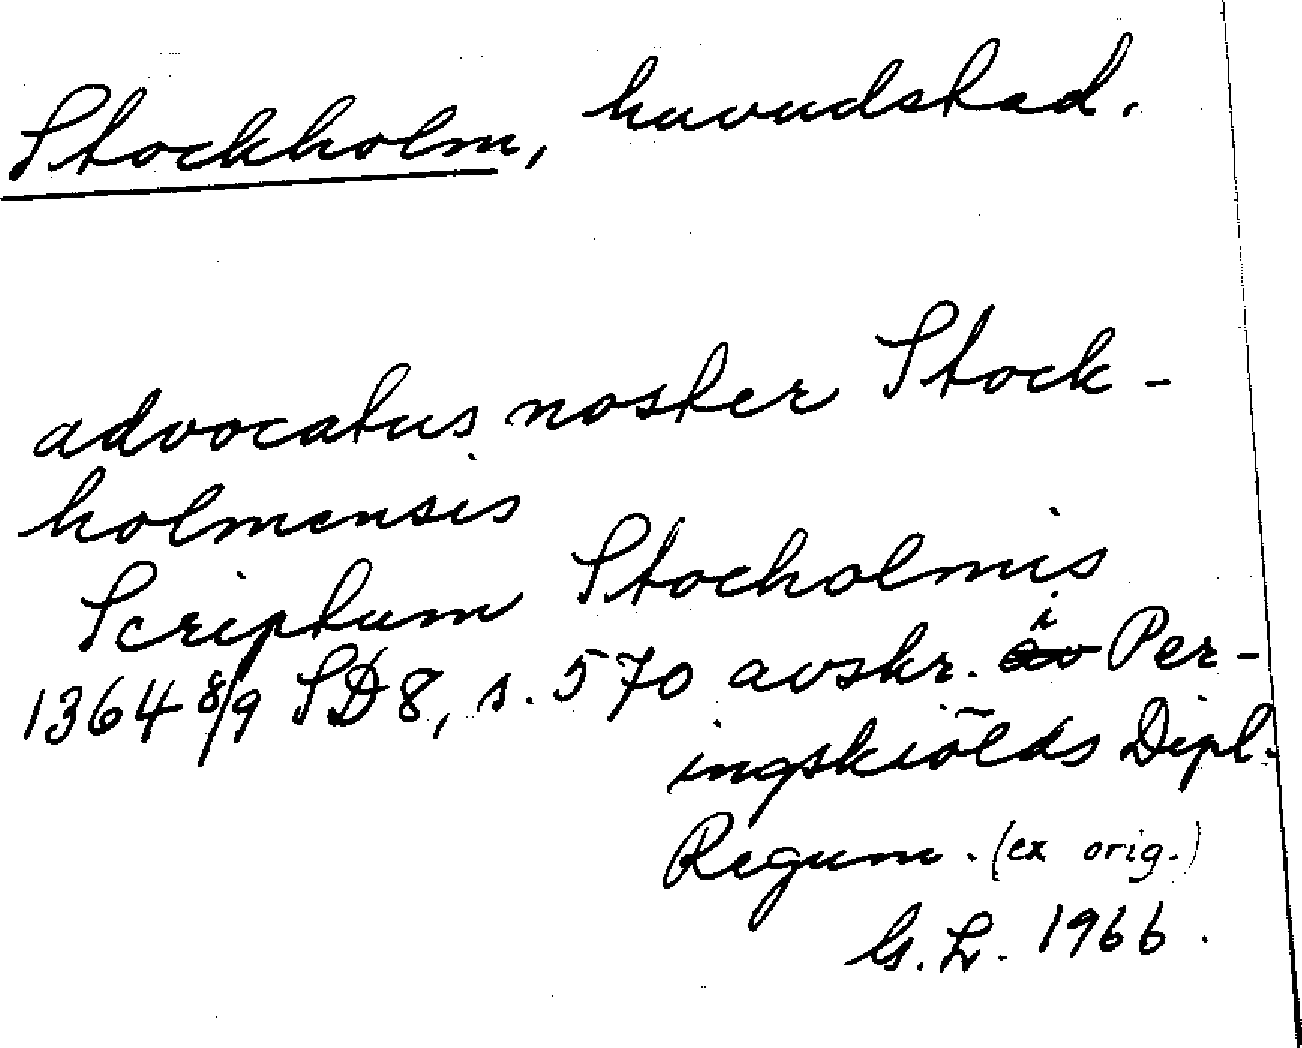 Stockholm, huvudstad.
advocatus noster Stock-
holmensis
Scriptum Stocholmis
1364 8/9 SD 8, s. 570 avskr. i Per-
ingskiölds Dipl.
Regum. (ex orig.)
G. L. 1966.